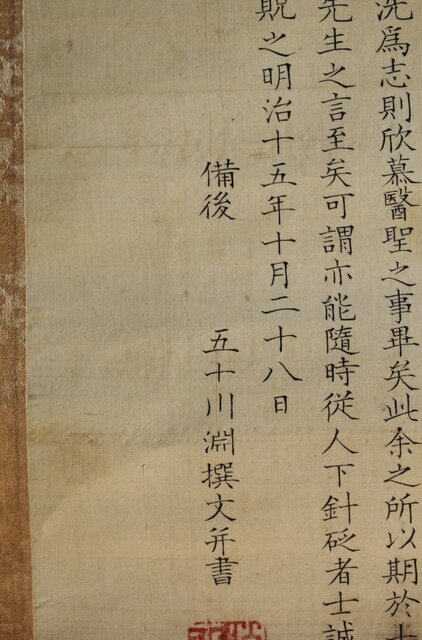 為志則欣慕醫聖之事畢矣此余之所以期於
先生之言至矣可謂亦能隨時從人下針砭者士誠
貺之明治十五年十月二十八日
備後 五十川淵撰文并書